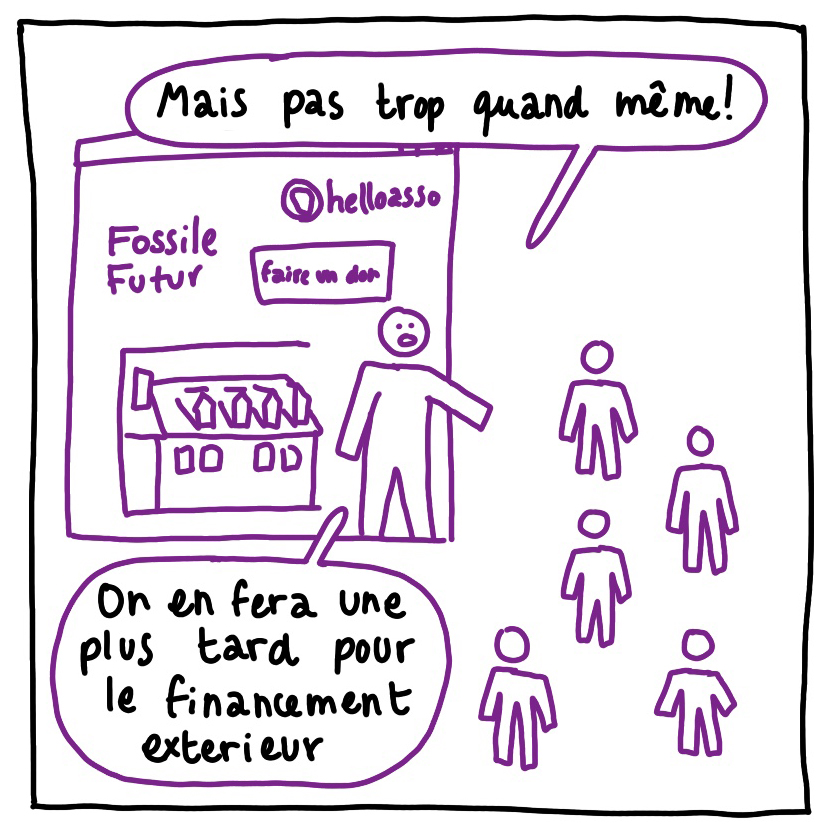 Mais pas trop quand même!
helloasso
Fossile
Futur
faire un don
On en fera une
plus tard pour
le financement
exterieur